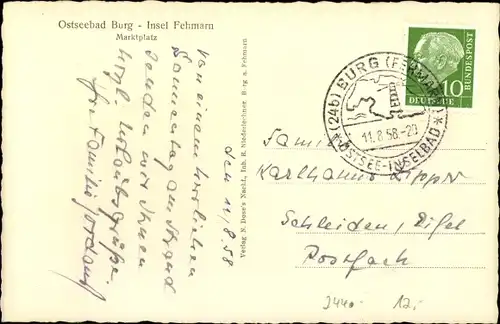 Ostseebad Burg - Insel Fehmarn
Marktplatz
den 11/8.58
Von einem herrlichen
Sonnentag am Strand
senden wir Ihnen
herzl. Urlaubsgrüße.
Ihre Familie
Verlag N. Dose's Nachf., Inh. R. Niederlechner, Burg a. Fehmarn
(24b) BURG (FEHMARN)
11.8.58.-20
OSTSEE-INSELBAD
DEUTSCHE BUNDESPOST
10
Familie
Karlhanns Lipper
Schleiden, Eifel
Postfach
12,-